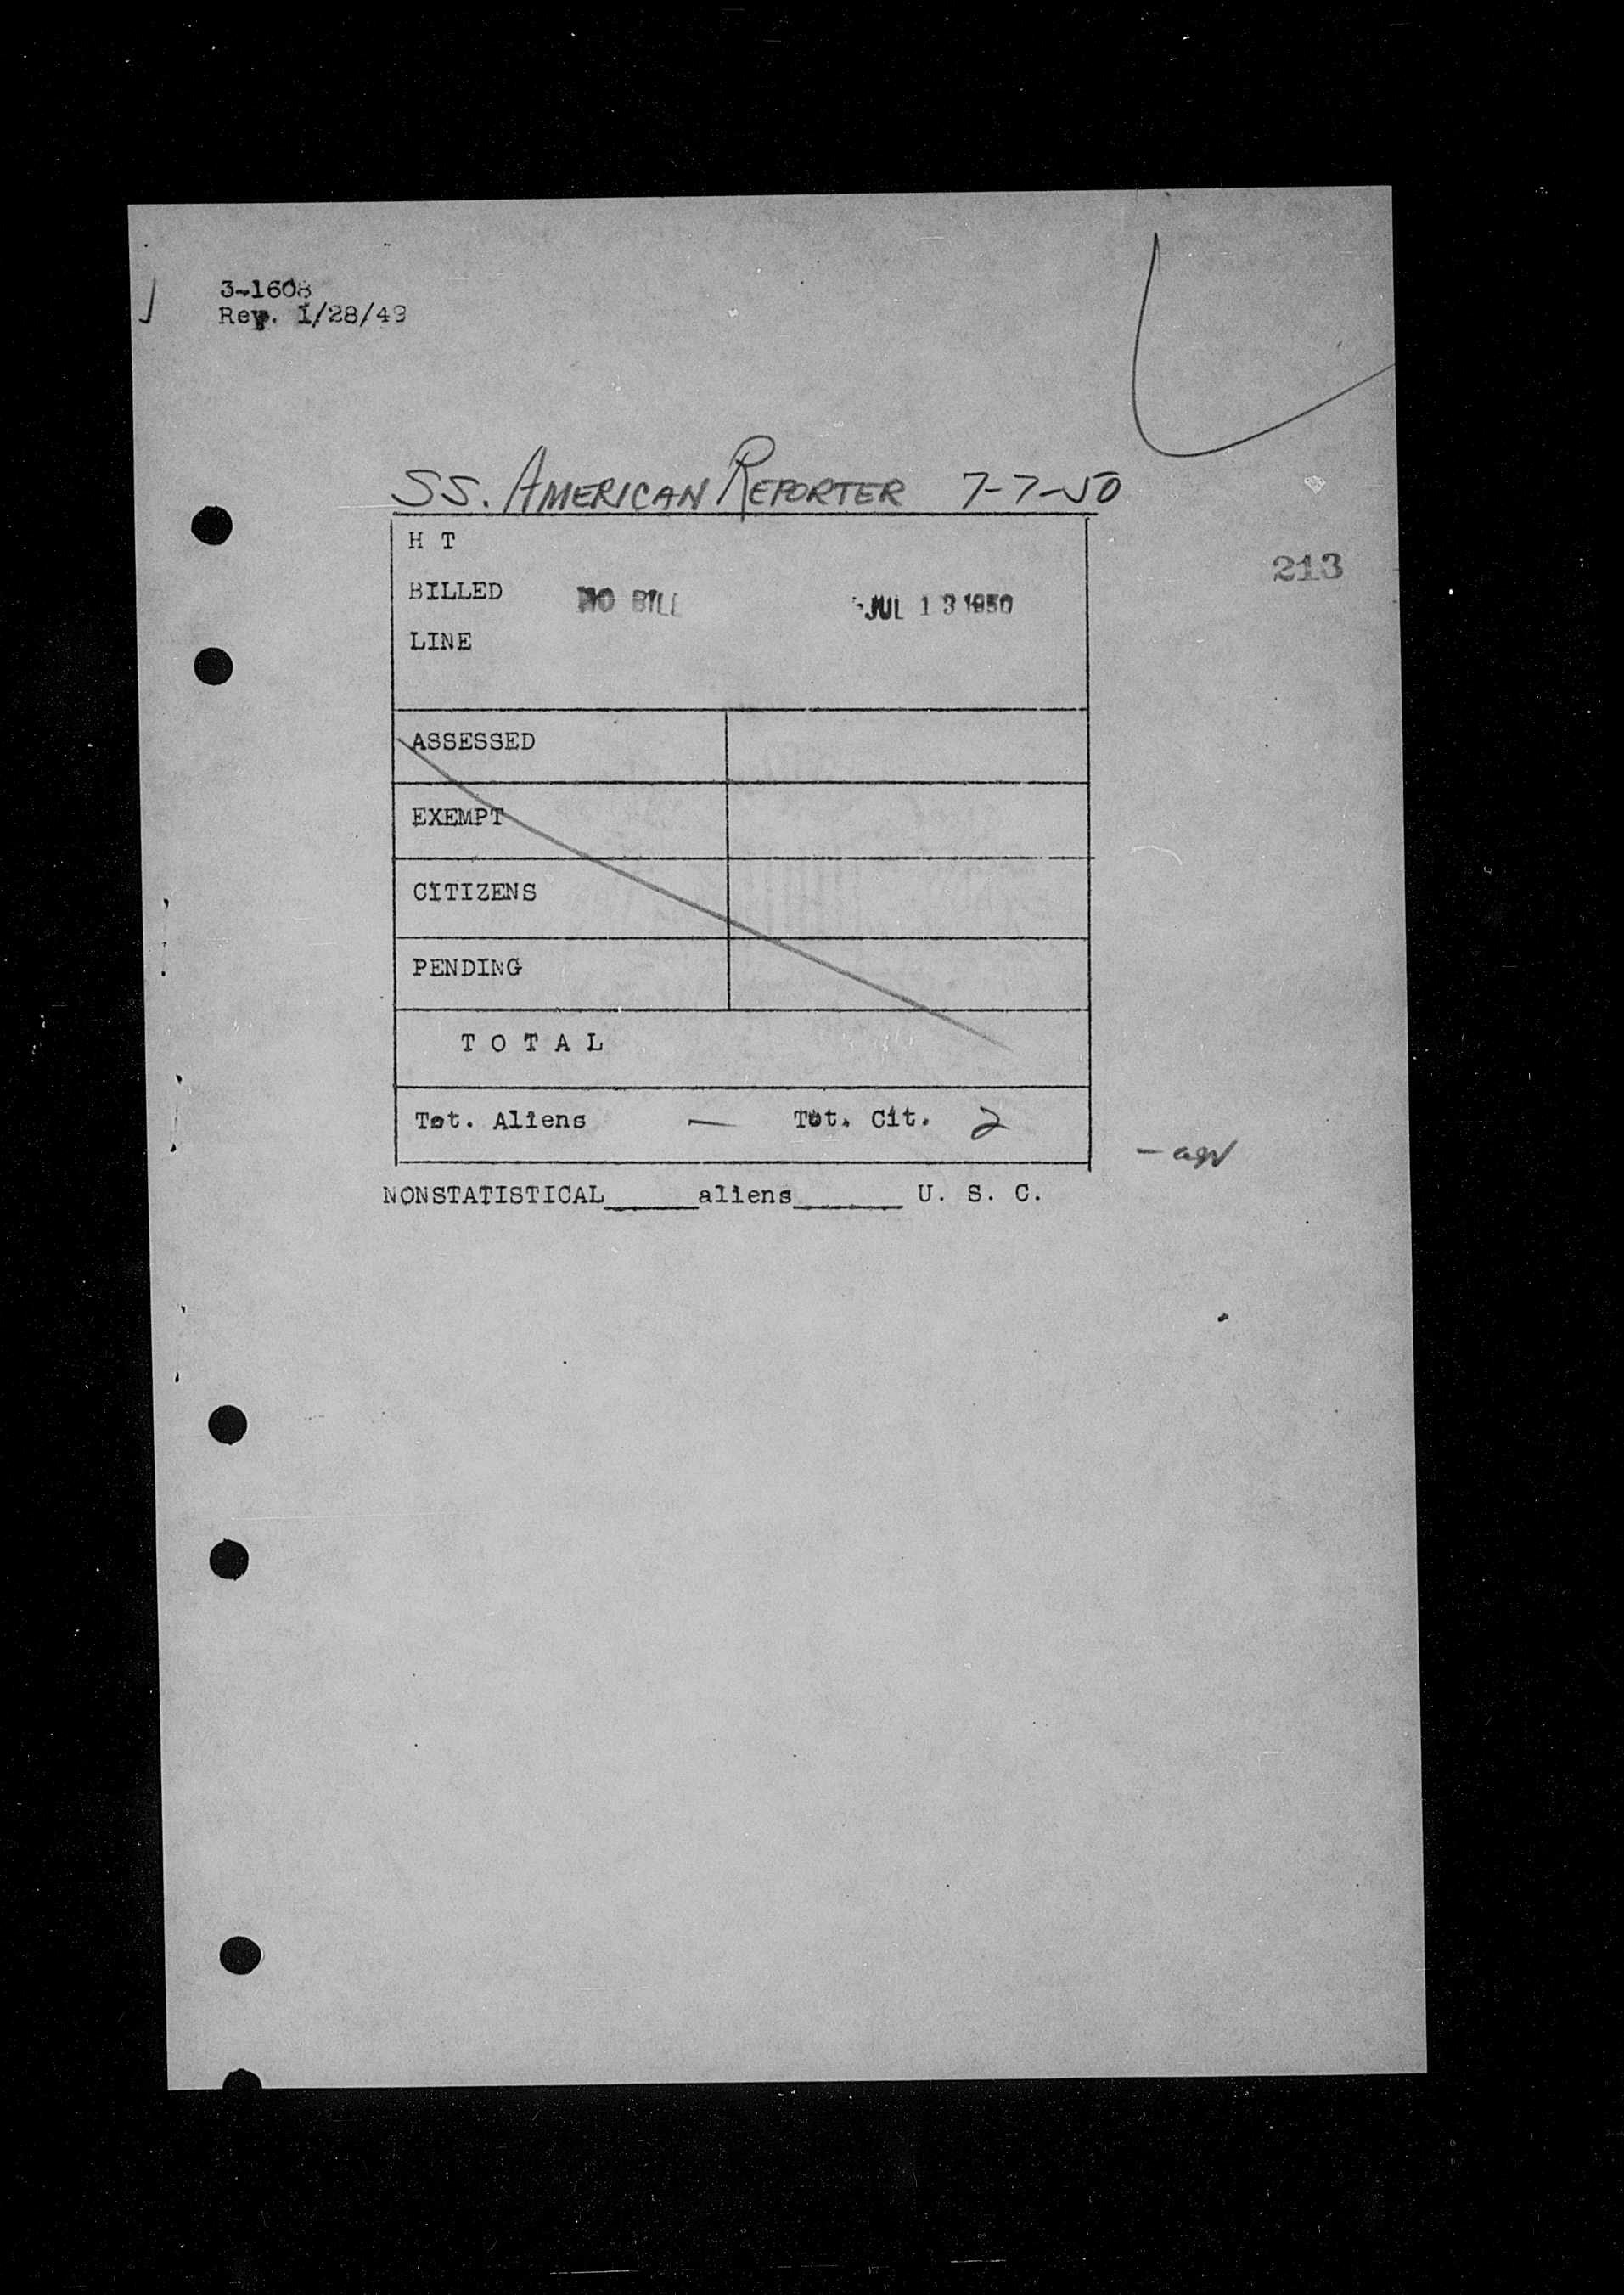 3-1608
Rev. 1/28/49
SS. AMERICAN REPORTER 7-7-50
213
H T
BILLED NO BILL JUL 13 1950
LINE
ASSESSED
EXEMPT
CITIZENS
PENDING
T O T A L
Tot. Aliens — Tot. Cit. 2
NONSTATISTICAL_____aliens______ U. S. C.